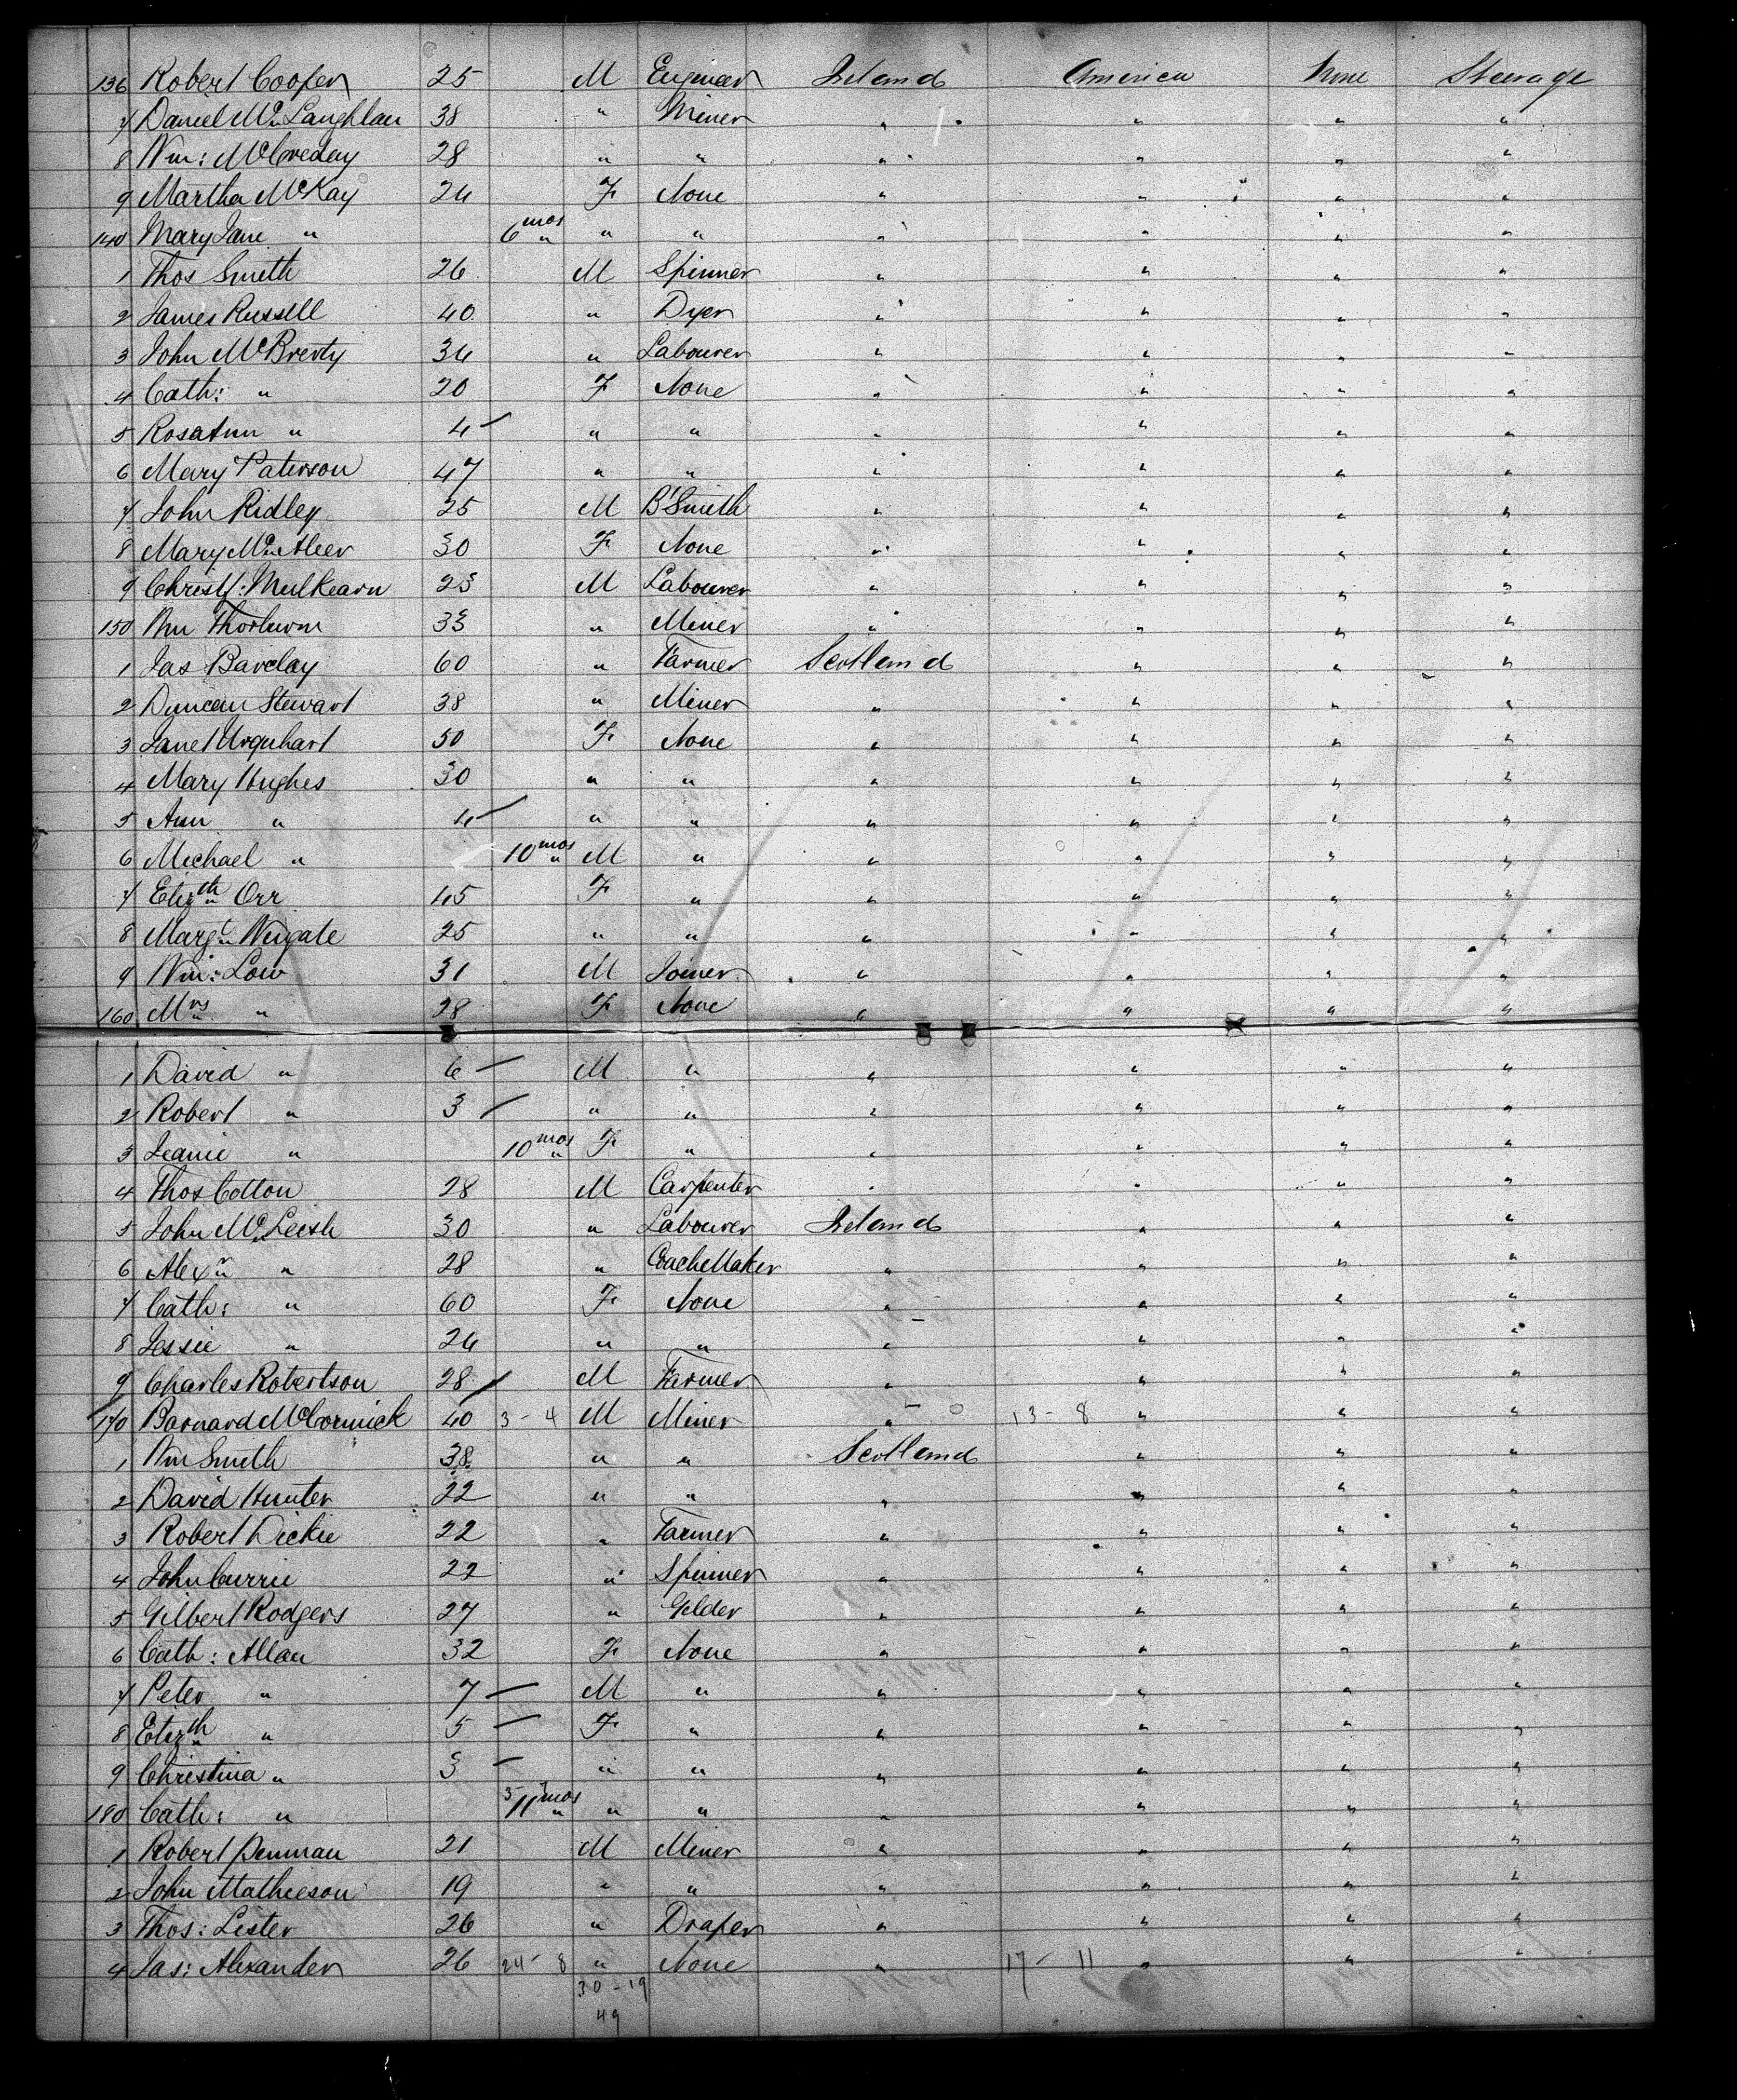 136 Robert Cooper 25 M Engineer Ireland America None Steerage
7 Daniel Mc Laughlan 38 " Miner " " " "
8 Wm: McCreday 28 " " " " " "
9 Martha McKay 24 F None " " " "
140 Mary Jane " 6 mos " " " " " "
1 Thos Smith 26 M Spinner " " " "
2 James Russell 40 " Dyer " " " "
3 John McBrerty 34 " Labourer " " " "
4 Cath: " 20 F None " " " "
5 RosaAnn " 4 – " " " " " "
6 Mary Paterson 47 " " " " " "
7 John Ridley 25 M B'Smith " " " "
8 Mary McAleer 30 F None " " " "
9 Christr: Mulkearn 23 M Labourer " " " "
150 Wm Thorburn 33 " Miner " " " "
1 Jas Barclay 60 " Farmer Scotland " " "
2 Duncan Stewart 38 " Miner " " " "
3 Janet Urquhart 50 F None " " " "
4 Mary Hughes 30 " " " " " "
5 Ann " 4 – " " " " " "
6 Michael " 10 mos M " " " " "
7 Elizth Orr 45 F " " " " "
8 Margt Wingate 25 " " " " " "
9 Wm: Low 31 M Joiner " " " "
160 Mrs " 28 F None " " " "
1 David " 6 – M " " " " "
2 Robert " 3 – " " " " " "
3 Jeanie " 10 mos F " " " " "
4 Thos Cotton 28 M Carpenter " " " "
5 John McLeish 30 " Labourer Ireland " " "
6 Alexr " 28 " CoachMaker " " " "
7 Cath: " 60 F None " " " "
8 Jessie " 24 " " " " " "
9 Charles Robertson 28 M Farmer " " " "
170 Barnard McCormick 40 3 - 4 M Miner " 13 - 8 " " "
1 Wm Smith 38 " " Scotland " " "
2 David Hunter 22 " " " " " "
3 Robert Dickie 22 " Farmer " " " "
4 John Currie 22 " Spinner " " " "
5 Gilbert Rodgers 27 " Gilder " " " "
6 Cath: Allan 32 F None " " " "
7 Peter " 7 – M " " " " "
8 Elizth " 5 – F " " " " "
9 Christina " 3 – " " " " " "
180 Cath: " 11 mos " " " " " "
1 Robert Penman 21 M Miner " " " "
2 John Mathieson 19 " " " " " "
3 Thos: Lister 26 " Draper " " " "
4 Jas: Alexander 26 24 - 8 " None " 17 - 11 " " "
30 - 19
49